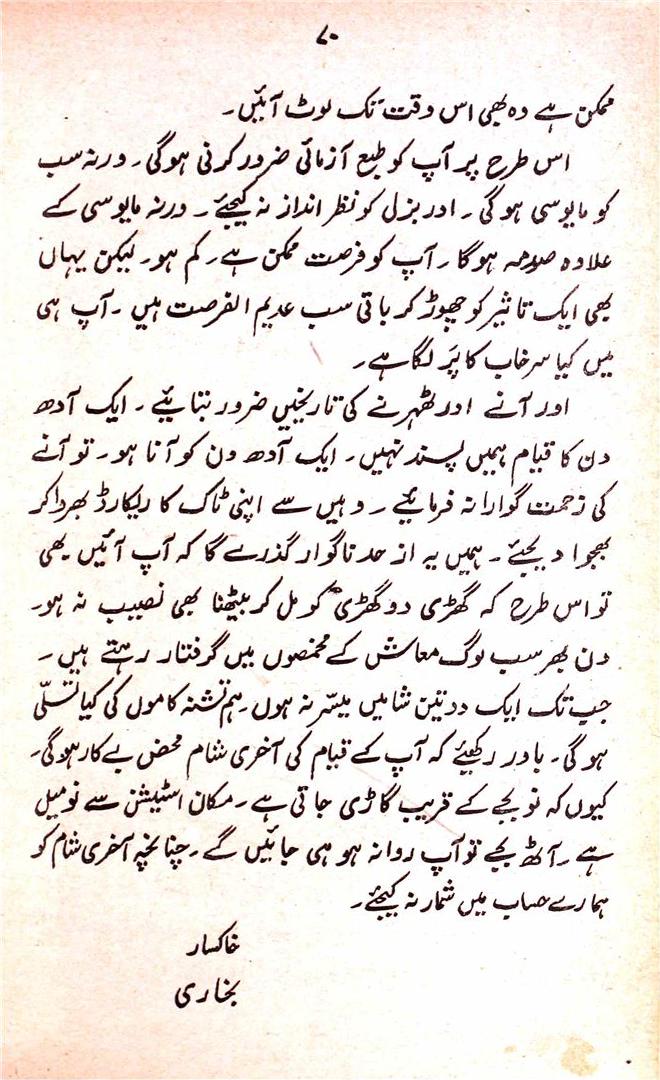 ۷۰
ممکن ہے وہ بھی اس وقت تک لوٹ آئیں۔
اس طرح پر آپ کو طبع آزمائی ضرور کرنی ہوگی۔ ورنہ سب
کو مایوسی ہو گی۔ اور بزل کو نظر انداز نہ کیجئے۔ ورنہ مایوسی کے
علاوہ صدمہ ہوگا۔ آپ کو فرصت ممکن ہے۔ کم ہو۔ لیکن یہاں
بھی ایک تاثیر کو چھوڑ کر باقی سب عدیم الفرصت ہیں۔ آپ ہی
میں کیا سرخاب کا پَر لگا ہے۔
اور آنے اور ٹھہرنے کی تاریخیں ضرور بتایئے۔ ایک آدھ
دن کا قیام ہمیں پسند نہیں۔ ایک آدھ دن کو آنا ہو۔ تو آنے
کی زحمت گوارا نہ فرمایئے۔ وہیں سے اپنی ٹاک کا ریکارڈ بھروا کر
بھجوا دیجئے۔ ہمیں یہ از حد ناگوار گذرے گا کہ آپ آئیں بھی
تو اس طرح کہ گھڑی دو گھڑی کو مل کر بیٹھنا بھی نصیب نہ ہو۔
دن بھر سب لوگ معاش کے مخمصوں میں گرفتار رہتے ہیں۔
جب تک ایک دو تین شامیں میسّر نہ ہوں۔ ہم تشنہ کاموں کی کیا تسلّی
ہو گی۔ یاد رکھیئے کہ آپ کے قیام کی آخری شام محض بے کار ہو گی۔
کیوں کہ نو بجے کے قریب گاڑی جاتی ہے۔ مکان اسٹیشن سے نو میل
ہے۔ آٹھ بجے تو آپ روانہ ہو ہی جائیں گے۔ چنانچہ آخری شام کو
ہمارے حساب میں شمار نہ کیجئے۔
خاکسار
بخاری